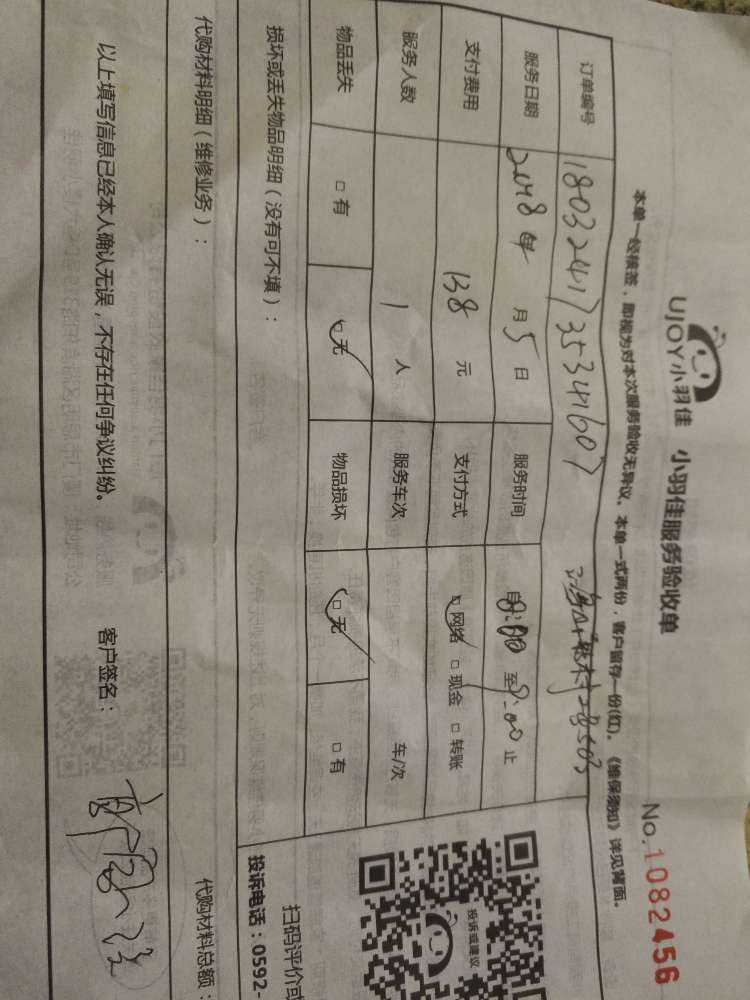 UJOY小羽佳 小羽佳服务验收单 No.1082456
本单一经核签，即视为对本次服务验收无异议。本单一式两份，客户留存一份(红)。《维保须知》详见背面。
订单编号 1803241735341607
服务日期 2018年 月5日 服务时间 自8:00至9:00止
支付费用 138元 支付方式 □网络 □现金 □转账
服务人数 1人 服务车次 车/次
物品丢失 □有 □无 物品损坏 □无 □有
损坏或丢失物品明细（没有可不填）：
代购材料明细（维修业务）： 代购材料总额：
以上填写信息已经本人确认无误，不存在任何争议纠纷。 客户签名：
投诉或建议
扫码评价或
投诉电话：0592-